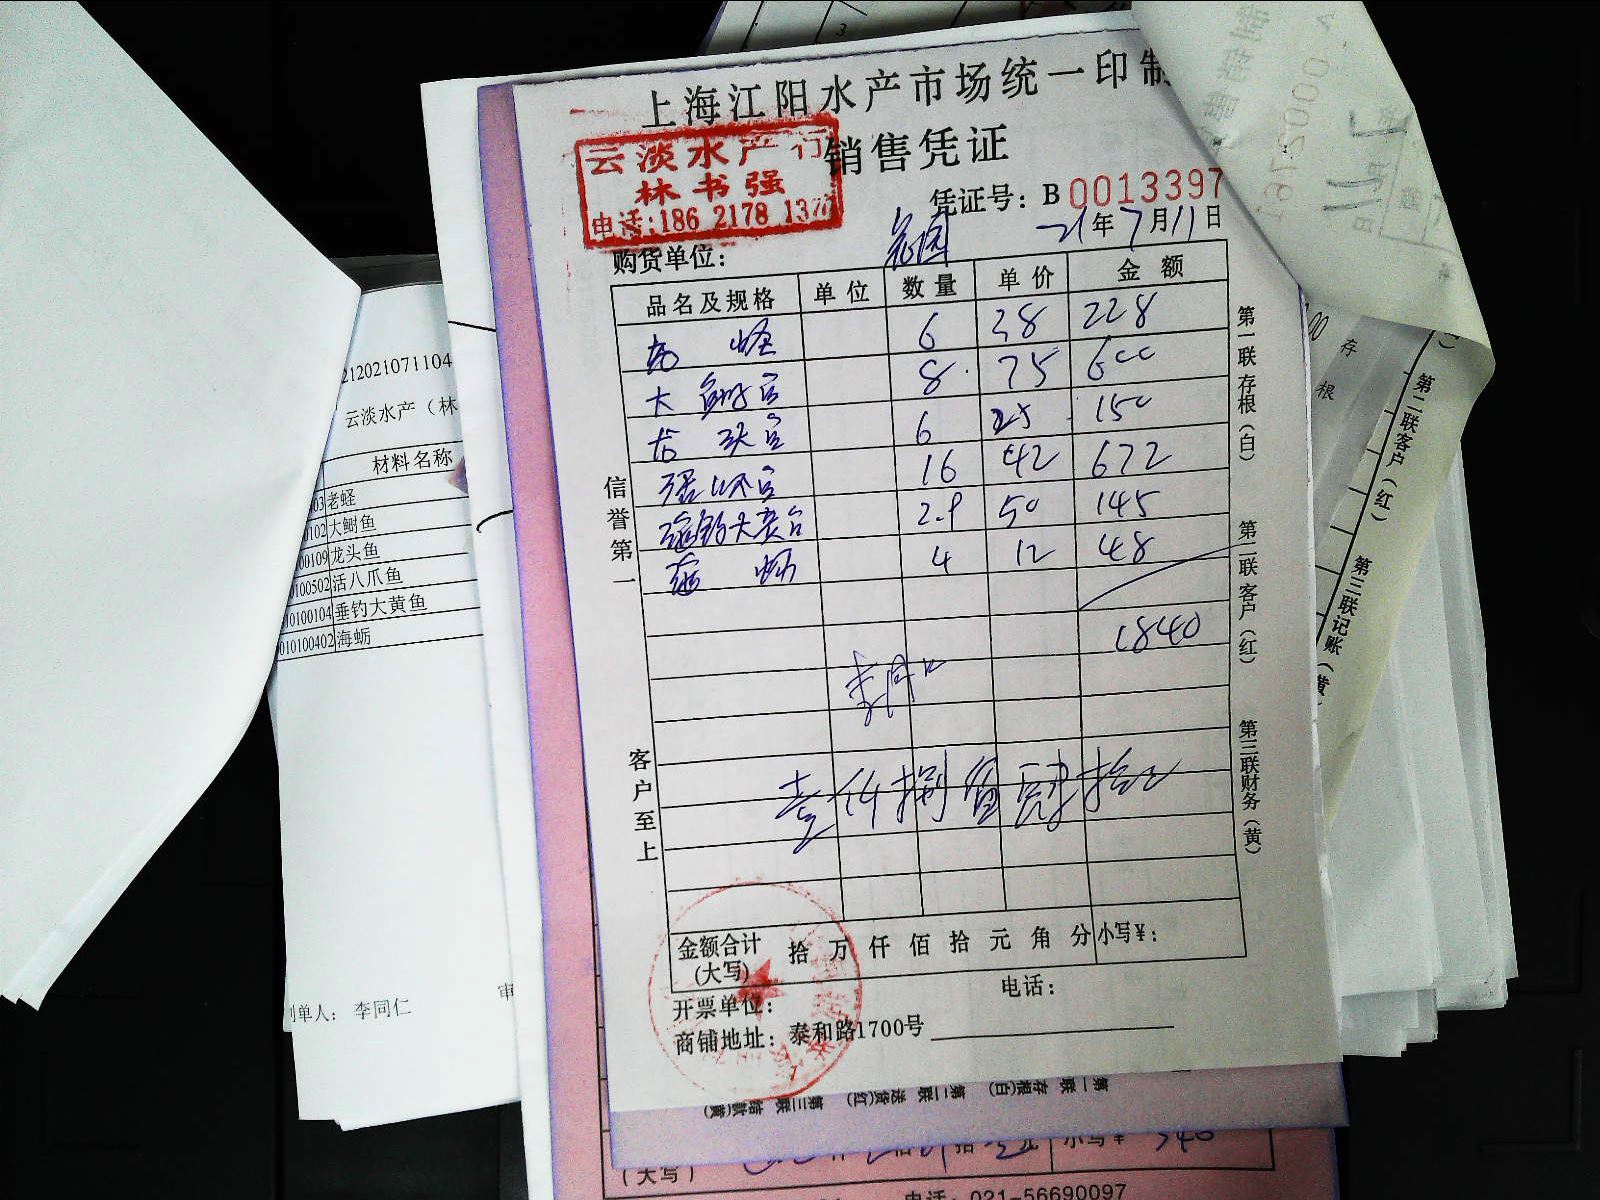 上海江阳水产市场统一印制
销售凭证
云淡水产行
林书强
电话:186 2178 137
凭证号: B 0013397
21年7月11日
购货单位:
品名及规格 单位 数量 单价 金额
老蛏 6 38 228
大 8 75 600
龙头 6 25 150
16 42 672
垂钓大黄 2.9 50 145
海蛎 4 12 48
1840
李同仁
壹仟捌佰肆拾元
金额合计(大写) 拾 万 仟 佰 拾 元 角 分 小写¥:
开票单位:
电话:
商铺地址: 泰和路1700号
信誉第一
客户至上
第一联存根(白)
第二联客户(红)
第三联财务(黄)
212021071104
云淡水产(林
材料名称
03 老蛏
0102 大鲥鱼
00109 龙头鱼
0100502 活八爪鱼
010100104 垂钓大黄鱼
010100402 海蛎
制单人: 李同仁
审
存根
第二联客户(红)
第三联记账(黄)
第一联 存根(白) 第二联 送货(红) 第三联 结款(黄)
(大写)
小写¥ 540
电话: 021-56690097